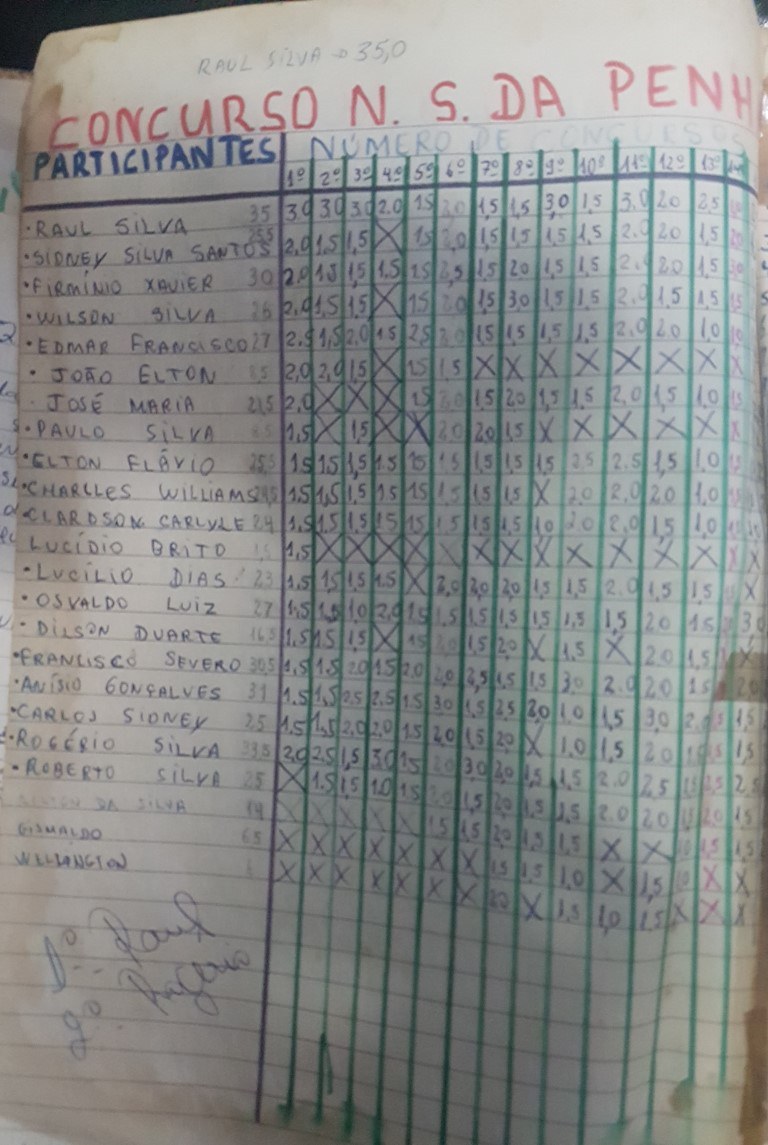 RAUL SILVA → 35,0
CONCURSO N. S. DA PENH
PARTICIPANTES NÚMERO DE CONCURSOS
1º 2º 3º 4º 5º 6º 7º 8º 9º 10º 11º 12º 13º
• RAUL SILVA 35 3,0 3,0 3,0 2,0 1,5 2,0 1,5 1,5 3,0 1,5 3,0 2,0 2,5
• SIDNEY SILVA SANTOS 2,0 1,5 1,5 X 1,5 2,0 1,5 1,5 1,5 1,5 2,0 2,0 1,5
• FIRMÍNIO XAVIER 30 2,0 1,5 1,5 1,5 1,5 2,5 1,5 2,0 1,5 1,5 2,0 2,0 1,5
• WILSON SILVA 26 2,0 1,5 1,5 X 1,5 2,0 1,5 3,0 1,5 1,5 2,0 1,5 1,5
• EDMAR FRANCISCO 27 2,5 1,5 2,0 1,5 2,5 2,0 1,5 1,5 1,5 1,5 2,0 2,0 1,0
• JOÃO ELTON 2,0 2,0 1,5 X 1,5 1,5 X X X X X X X X
JOSÉ MARIA 21,5 2,0 X X X 1,5 2,0 1,5 2,0 1,5 1,5 2,0 1,5 1,0
• PAULO SILVA 1,5 X 1,5 X X 2,0 2,0 1,5 X X X X X X
• ELTON FLÁVIO 25,5 1,5 1,5 1,5 1,5 1,5 1,5 1,5 1,5 1,5 2,5 2,5 1,5 1,0
• CHARLLES WILLIAMS 1,5 1,5 1,5 1,5 1,5 1,5 1,5 1,5 X 2,0 2,0 2,0 1,0
• CLARDSON CARLYLE 24 1,5 1,5 1,5 1,5 1,5 1,5 1,5 1,5 1,0 2,0 2,0 1,5 1,0
LUCÍDIO BRITO 1,5 X X X X X X X X X X X X X X
• LUCÍLIO DIAS 23 1,5 1,5 1,5 1,5 X 2,0 2,0 2,0 1,5 1,5 2,0 1,5 1,5 X
• OSVALDO LUIZ 27 1,5 1,5 1,0 2,0 1,5 1,5 1,5 1,5 1,5 1,5 1,5 2,0 1,5 3,0
• DILSON DUARTE 16,5 1,5 1,5 1,5 X 1,5 2,0 1,5 2,0 X 1,5 X 2,0 1,5 X
• FRANCISCO SEVERO 30,5 1,5 1,5 2,0 1,5 2,0 2,0 2,5 1,5 1,5 3,0 2,0 2,0 1,5 2,0
• ANÍSIO GONÇALVES 31 1,5 1,5 2,5 2,5 1,5 3,0 1,5 2,5 2,0 1,0 1,5 3,0 1,5
• CARLOS SIDNEY 25 1,5 1,5 2,0 2,0 1,5 2,0 1,5 2,0 X 1,0 1,5 2,0 1,5 1,5
• ROGÉRIO SILVA 33,5 2,0 2,5 1,5 3,0 1,5 2,0 3,0 2,0 1,5 1,5 2,0 2,5 2,5
• ROBERTO SILVA 25 X 1,5 1,5 1,0 1,5 2,0 1,5 2,0 1,5 1,5 2,0 2,0 1,5
DA SILVA 14 X X X X X 1,5 1,5 2,0 1,5 1,5 X X 1,5 1,5
GISMALDO 6,5 X X X X X X X 1,5 1,5 1,0 X 1,5 X X
WELLINGTON X X X X X X X 2,0 X 1,5 1,0 1,5 X X X
1º- Raul
2º- Rogério